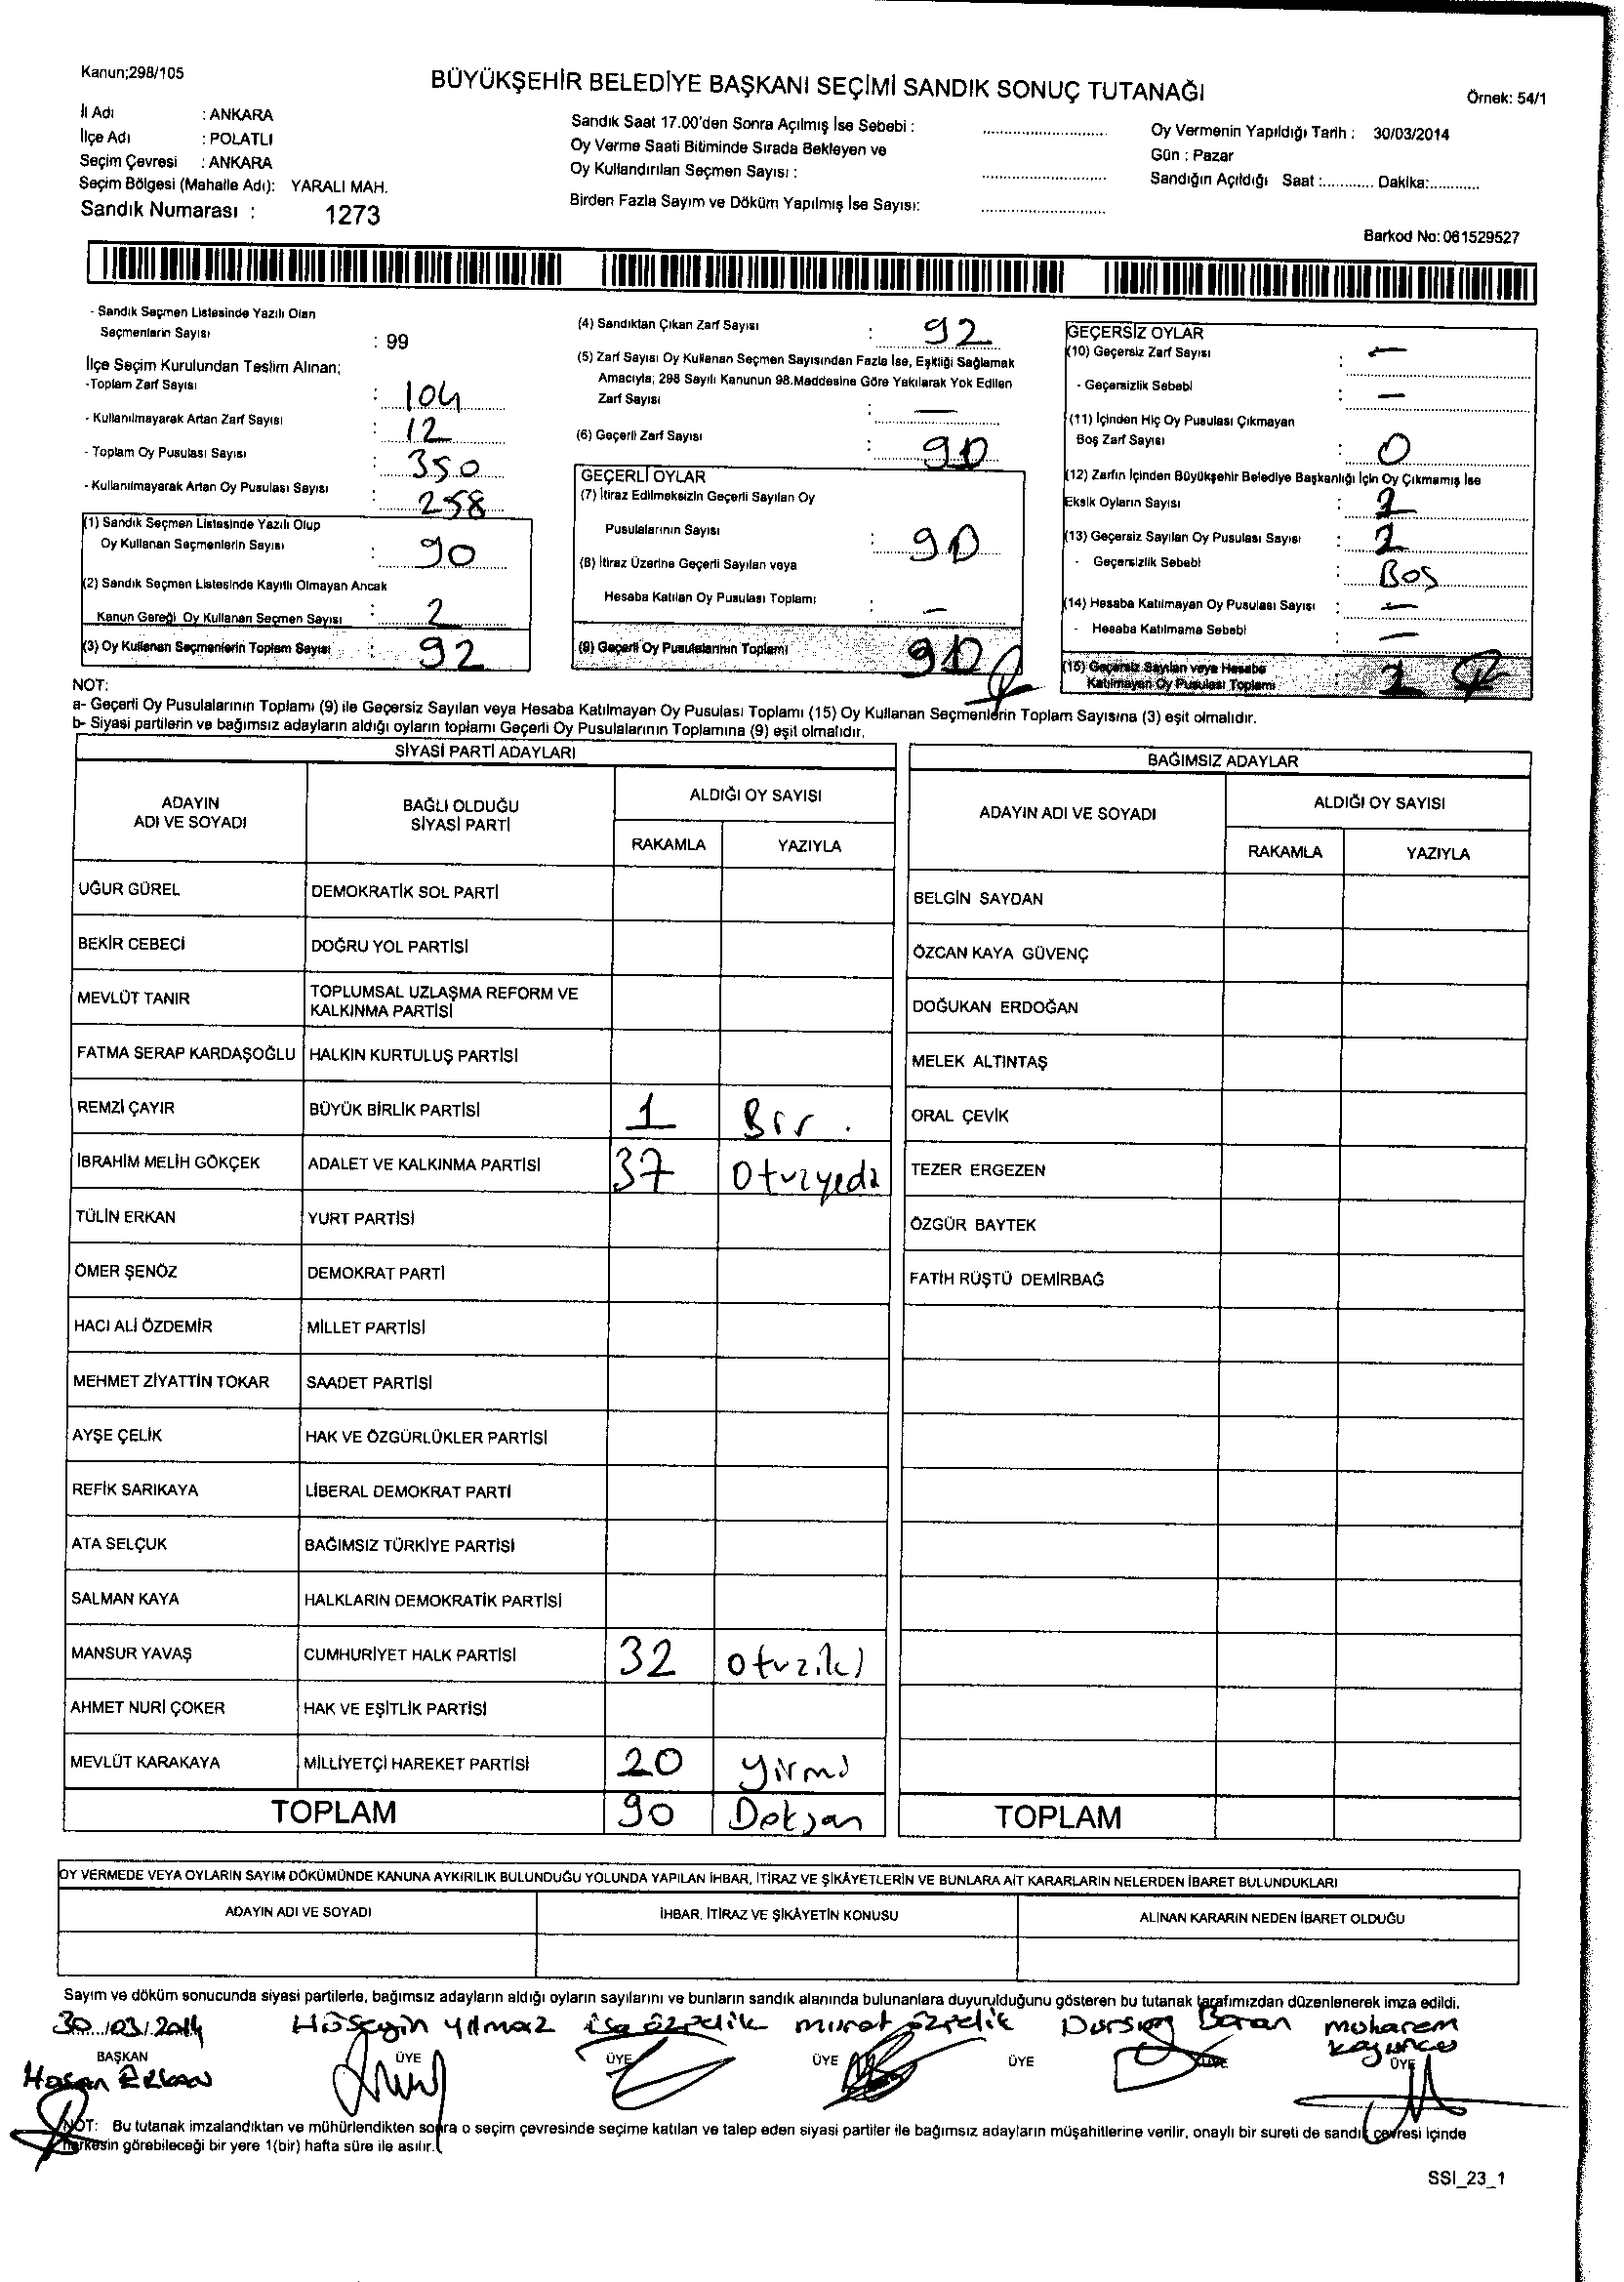 Kanun;298/105
BÜYÜKŞEHİR BELEDİYE BAŞKANI SEÇİMİ SANDIK SONUÇ TUTANAĞI
Örnek: 54/1
İl Adı : ANKARA
İlçe Adı : POLATLI
Seçim Çevresi : ANKARA
Seçim Bölgesi (Mahalle Adı): YARALI MAH.
Sandık Numarası : 1273
Sandık Saat 17.00'den Sonra Açılmış İse Sebebi :
Oy Verme Saati Bitiminde Sırada Bekleyen ve
Oy Kullandırılan Seçmen Sayısı :
Birden Fazla Sayım ve Döküm Yapılmış İse Sayısı:
Oy Vermenin Yapıldığı Tarih : 30/03/2014
Gün : Pazar
Sandığın Açıldığı Saat :............ Dakika:............
Barkod No: 061529527
- Sandık Seçmen Listesinde Yazılı Olan
Seçmenlerin Sayısı : 99
İlçe Seçim Kurulundan Teslim Alınan;
-Toplam Zarf Sayısı : 104
- Kullanılmayarak Artan Zarf Sayısı : 12
- Toplam Oy Pusulası Sayısı : 350
- Kullanılmayarak Artan Oy Pusulası Sayısı : 258
(1) Sandık Seçmen Listesinde Yazılı Olup
Oy Kullanan Seçmenlerin Sayısı : 90
(2) Sandık Seçmen Listesinde Kayıtlı Olmayan Ancak
Kanun Gereği Oy Kullanan Seçmen Sayısı : 2
(3) Oy Kullanan Seçmenlerin Toplam Sayısı : 92
(4) Sandıktan Çıkan Zarf Sayısı : 92
(5) Zarf Sayısı Oy Kullanan Seçmen Sayısından Fazla İse, Eşitliği Sağlamak
Amacıyla; 298 Sayılı Kanunun 98.Maddesine Göre Yakılarak Yok Edilen
Zarf Sayısı : —
(6) Geçerli Zarf Sayısı : 90
GEÇERLİ OYLAR
(7) İtiraz Edilmeksizin Geçerli Sayılan Oy
Pusulalarının Sayısı : 90
(8) İtiraz Üzerine Geçerli Sayılan veya
Hesaba Katılan Oy Pusulası Toplamı : —
(9) Geçerli Oy Pusulalarının Toplamı 90
GEÇERSİZ OYLAR
(10) Geçersiz Zarf Sayısı : —
- Geçersizlik Sebebi : —
(11) İçinden Hiç Oy Pusulası Çıkmayan
Boş Zarf Sayısı : 0
(12) Zarfın İçinden Büyükşehir Belediye Başkanlığı İçin Oy Çıkmamış İse
Eksik Oyların Sayısı : 2
(13) Geçersiz Sayılan Oy Pusulası Sayısı : 2
- Geçersizlik Sebebi : Boş
(14) Hesaba Katılmayan Oy Pusulası Sayısı : —
- Hesaba Katılmama Sebebi : —
(15) Geçersiz Sayılan veya Hesaba
Katılmayan Oy Pusulası Toplamı 2
NOT:
a- Geçerli Oy Pusulalarının Toplamı (9) ile Geçersiz Sayılan veya Hesaba Katılmayan Oy Pusulası Toplamı (15) Oy Kullanan Seçmenlerin Toplam Sayısına (3) eşit olmalıdır.
b- Siyasi partilerin ve bağımsız adayların aldığı oyların toplamı Geçerli Oy Pusulalarının Toplamına (9) eşit olmalıdır.
SİYASİ PARTİ ADAYLARI
ADAYIN ADI VE SOYADI BAĞLI OLDUĞU SİYASİ PARTİ ALDIĞI OY SAYISI
RAKAMLA YAZIYLA
UĞUR GÜREL DEMOKRATİK SOL PARTİ
BEKİR CEBECİ DOĞRU YOL PARTİSİ
MEVLÜT TANIR TOPLUMSAL UZLAŞMA REFORM VE KALKINMA PARTİSİ
FATMA SERAP KARDAŞOĞLU HALKIN KURTULUŞ PARTİSİ
REMZİ ÇAYIR BÜYÜK BİRLİK PARTİSİ 1 Bir.
İBRAHİM MELİH GÖKÇEK ADALET VE KALKINMA PARTİSİ 37 Otuzyedi
TÜLİN ERKAN YURT PARTİSİ
ÖMER ŞENÖZ DEMOKRAT PARTİ
HACI ALİ ÖZDEMİR MİLLET PARTİSİ
MEHMET ZİYATTİN TOKAR SAADET PARTİSİ
AYŞE ÇELİK HAK VE ÖZGÜRLÜKLER PARTİSİ
REFİK SARIKAYA LİBERAL DEMOKRAT PARTİ
ATA SELÇUK BAĞIMSIZ TÜRKİYE PARTİSİ
SALMAN KAYA HALKLARIN DEMOKRATİK PARTİSİ
MANSUR YAVAŞ CUMHURİYET HALK PARTİSİ 32 otuziki
AHMET NURİ ÇOKER HAK VE EŞİTLİK PARTİSİ
MEVLÜT KARAKAYA MİLLİYETÇİ HAREKET PARTİSİ 20 yirmi
TOPLAM 90 Doksan
BAĞIMSIZ ADAYLAR
ADAYIN ADI VE SOYADI ALDIĞI OY SAYISI
RAKAMLA YAZIYLA
BELGİN SAYDAN
ÖZCAN KAYA GÜVENÇ
DOĞUKAN ERDOĞAN
MELEK ALTINTAŞ
ORAL ÇEVİK
TEZER ERGEZEN
ÖZGÜR BAYTEK
FATİH RÜŞTÜ DEMİRBAĞ
TOPLAM
OY VERMEDE VEYA OYLARIN SAYIM DÖKÜMÜNDE KANUNA AYKIRILIK BULUNDUĞU YOLUNDA YAPILAN İHBAR, İTİRAZ VE ŞİKÂYETLERİN VE BUNLARA AİT KARARLARIN NELERDEN İBARET BULUNDUKLARI
ADAYIN ADI VE SOYADI İHBAR, İTİRAZ VE ŞİKÂYETİN KONUSU ALINAN KARARIN NEDEN İBARET OLDUĞU
Sayım ve döküm sonucunda siyasi partilerle, bağımsız adayların aldığı oyların sayılarını ve bunların sandık alanında bulunanlara duyurulduğunu gösteren bu tutanak tarafımızdan düzenlenerek imza edildi.
30/03/2014 Hüseyin yılmaz isa özçelik murat özçelik Dursun Baran moharem
BAŞKAN ÜYE ÜYE ÜYE ÜYE ÜYE ÜYE
Hasan Erkan
NOT: Bu tutanak imzalandıktan ve mühürlendikten sonra o seçim çevresinde seçime katılan ve talep eden siyasi partiler ile bağımsız adayların müşahitlerine verilir, onaylı bir sureti de sandık çevresi içinde
herkesin görebileceği bir yere 1(bir) hafta süre ile asılır.
SSI_23_1